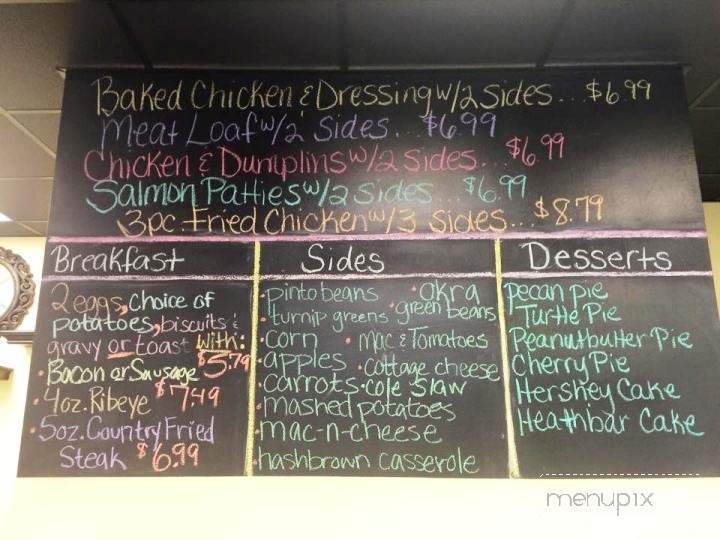 Baked Chicken & Dressing w/2 sides... $6.99
Meat Loaf w/2 Sides... $6.99
Chicken & Dumplins w/2 sides... $6.99
Salmon Patties w/2 sides... $6.99
3pc. Fried Chicken w/3 sides... $8.79
Breakfast
2 eggs, choice of
potatoes, biscuits &
gravy or toast with:
• Bacon or Sausage $5.79
• 4oz. Ribeye $7.49
• 5oz. Country Fried
Steak $6.99
Sides
• pinto beans • okra
• turnip greens • green beans
• corn • Mac & Tomatoes
• apples • cottage cheese
• carrots • cole slaw
• mashed potatoes
• mac-n-cheese
• hashbrown casserole
Desserts
pecan pie
Turtle Pie
Peanutbutter Pie
Cherry Pie
Hershey Cake
Heathbar Cake
menupix